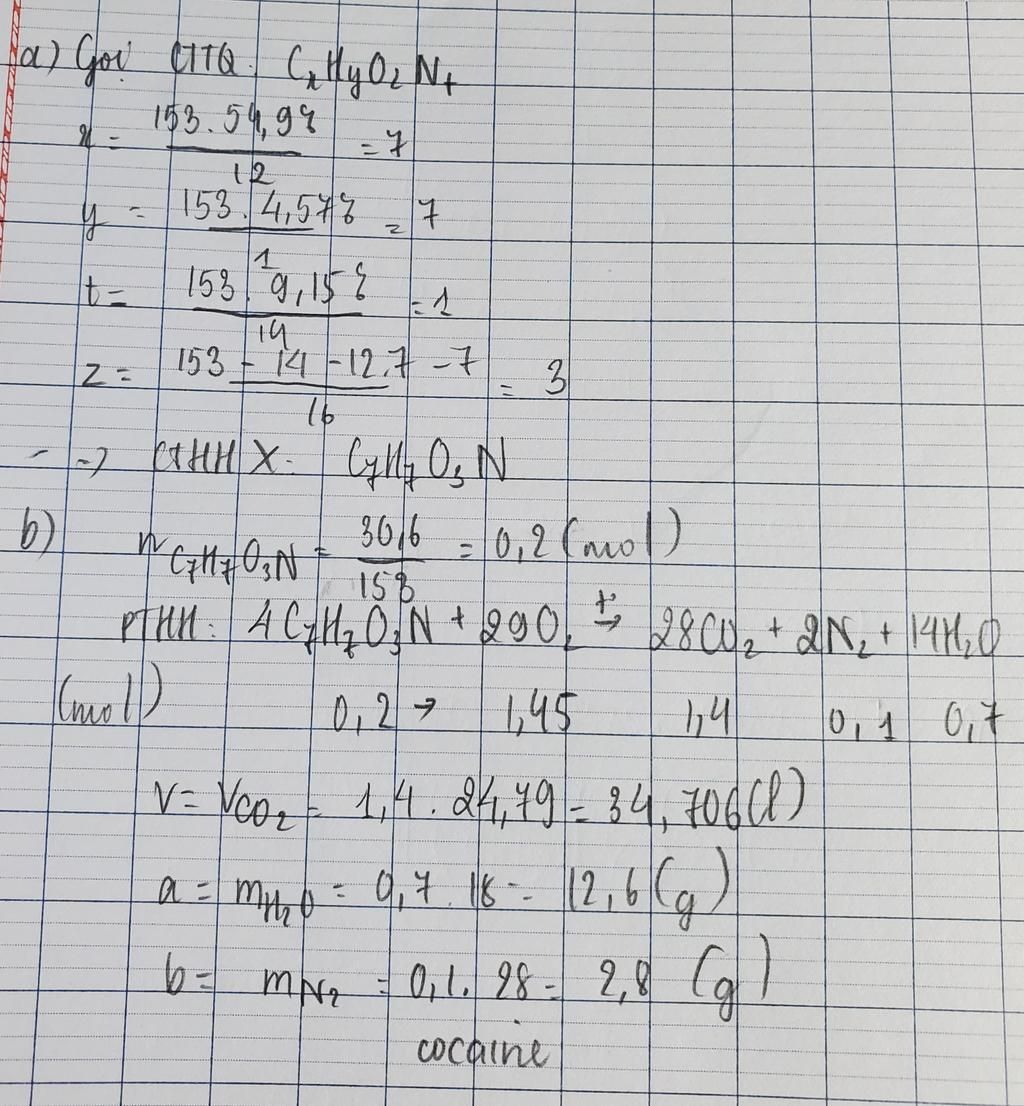 a) Gọi CTTQ: CxHyOzNt
x = 153.54,9% / 12 = 7
y = 153.4,57% / 1 = 7
t = 153.9,15% / 14 = 1
z = 153 - 14 - 12.7 - 7 / 16 = 3
-> CTHH X: C7H7O3N
b) nC7H7O3N = 30,6 / 153 = 0,2 (mol)
PTHH: 4C7H7O3N + 29O2 t° → 28CO2 + 2N2 + 14H2O
(mol) 0,2 → 1,45 1,4 0,1 0,7
V = VCO2 = 1,4.24,79 = 34,706(l)
a = mH2O = 0,7.18 = 12,6(g)
b = mN2 = 0,1.28 = 2,8 (g)
cocaine